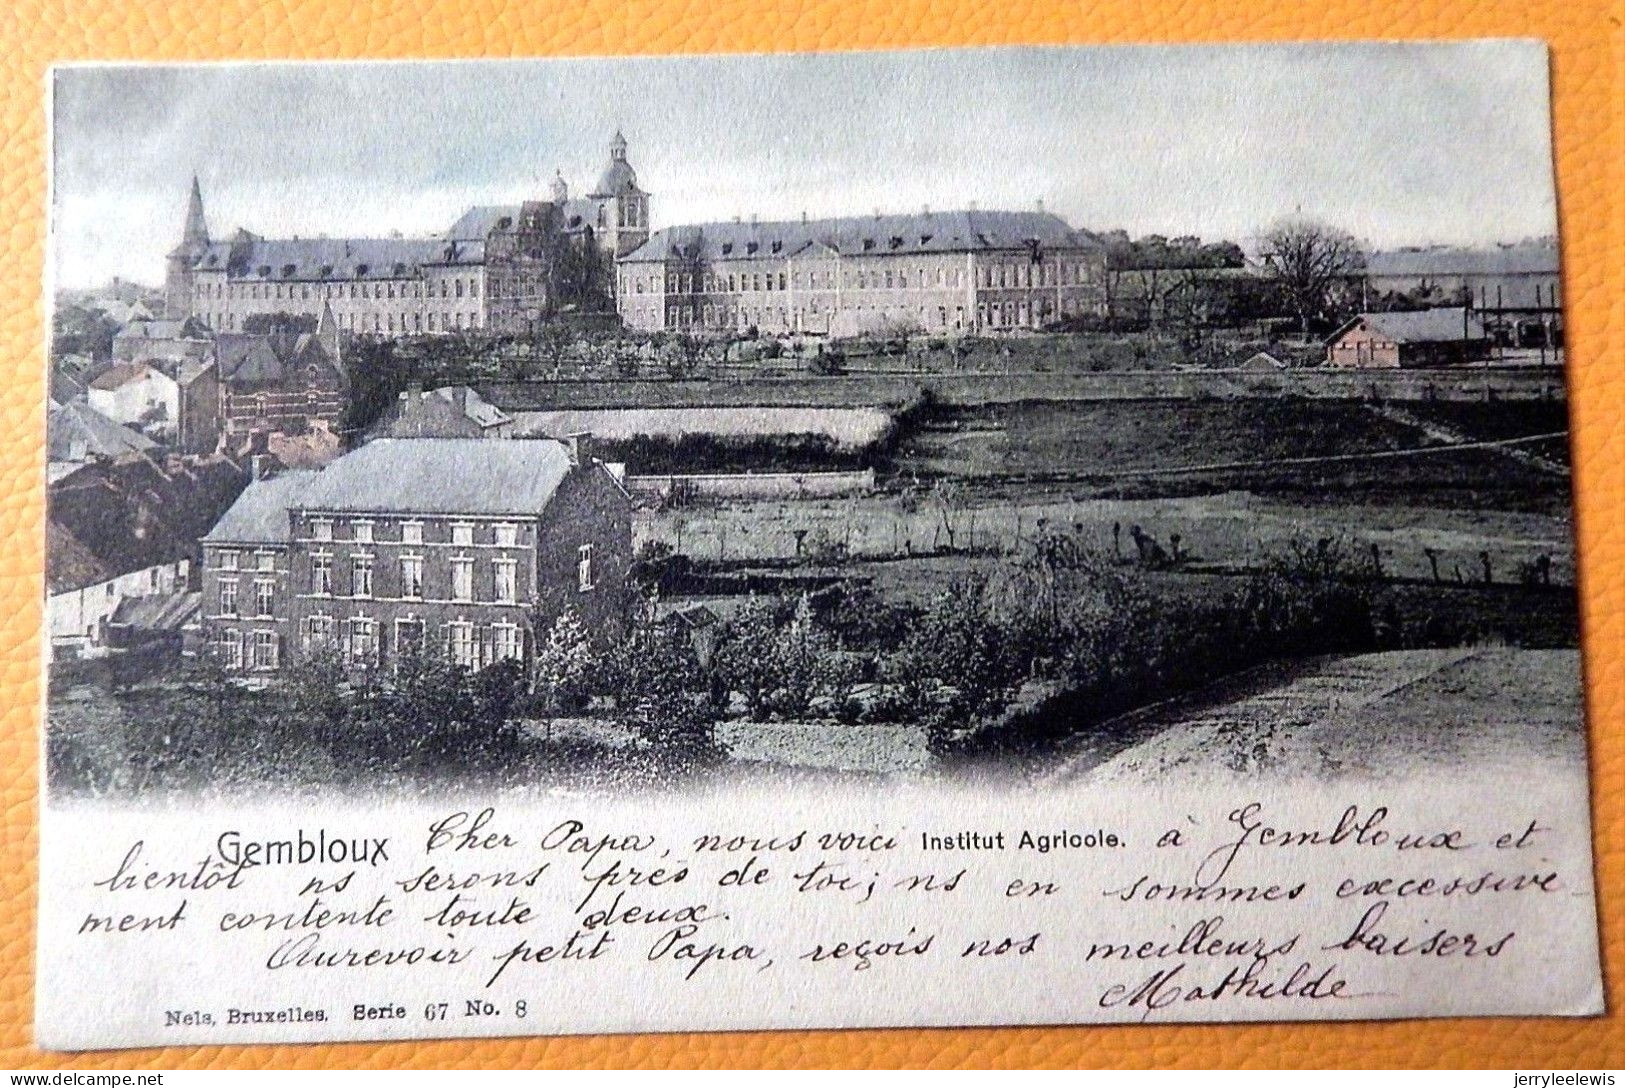 Gembloux Cher Papa, nous voici Institut Agricole. à Gembloux et
bientôt ns serons près de toi; ns en sommes excessive-
ment contente toute deux.
Aurevoir petit Papa, reçois nos meilleurs baisers
Mathilde
Nels, Bruxelles. Serie 67 No. 8
delcampe.net
jerryleelewis